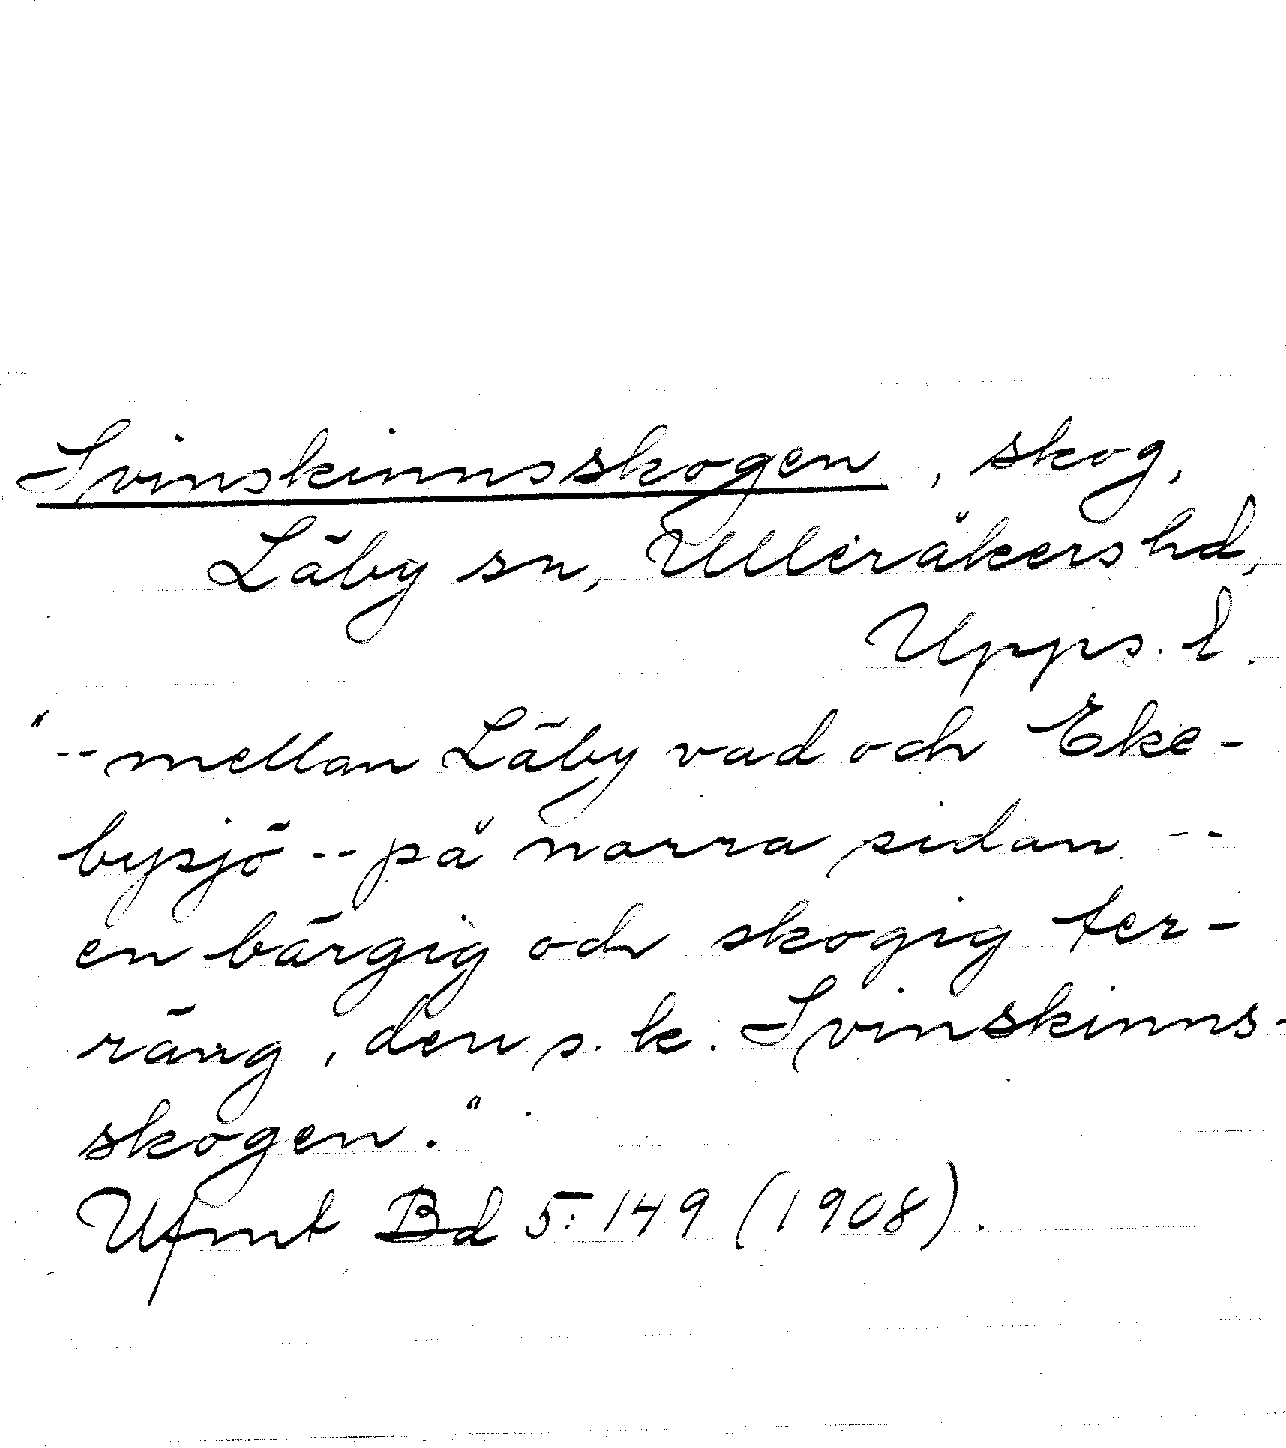 Svinskinnsskogen, skog,
Läby sn, Ulleråkers hd,
Upps. l.
"-- mellan Läby vad och Eke-
bysjö -- på norra sidan --
en bärgig och skogig ter-
räng, den s. k. Svinskinns-
skogen."
Ufmt Bd 5:149 (1908).